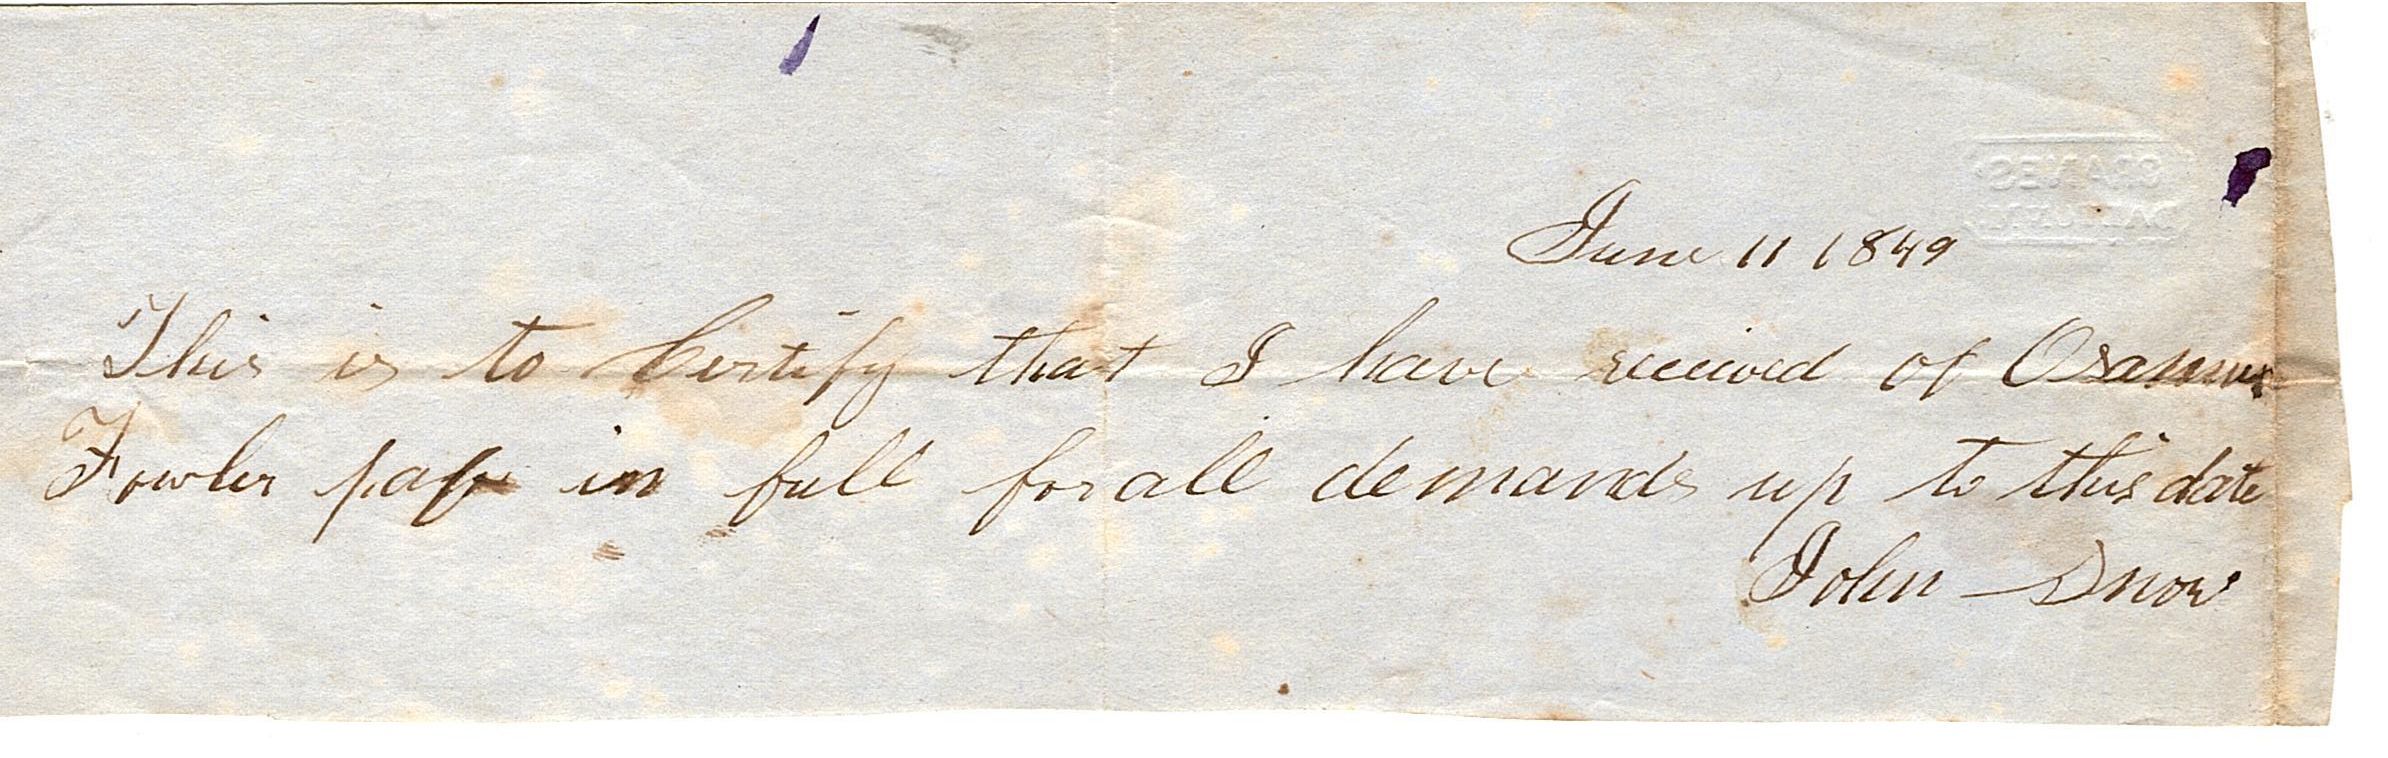 CRANES
June 11 1849
This is to Certify that I have received of
Fowler pay in full for all demands up to this date
John Snow